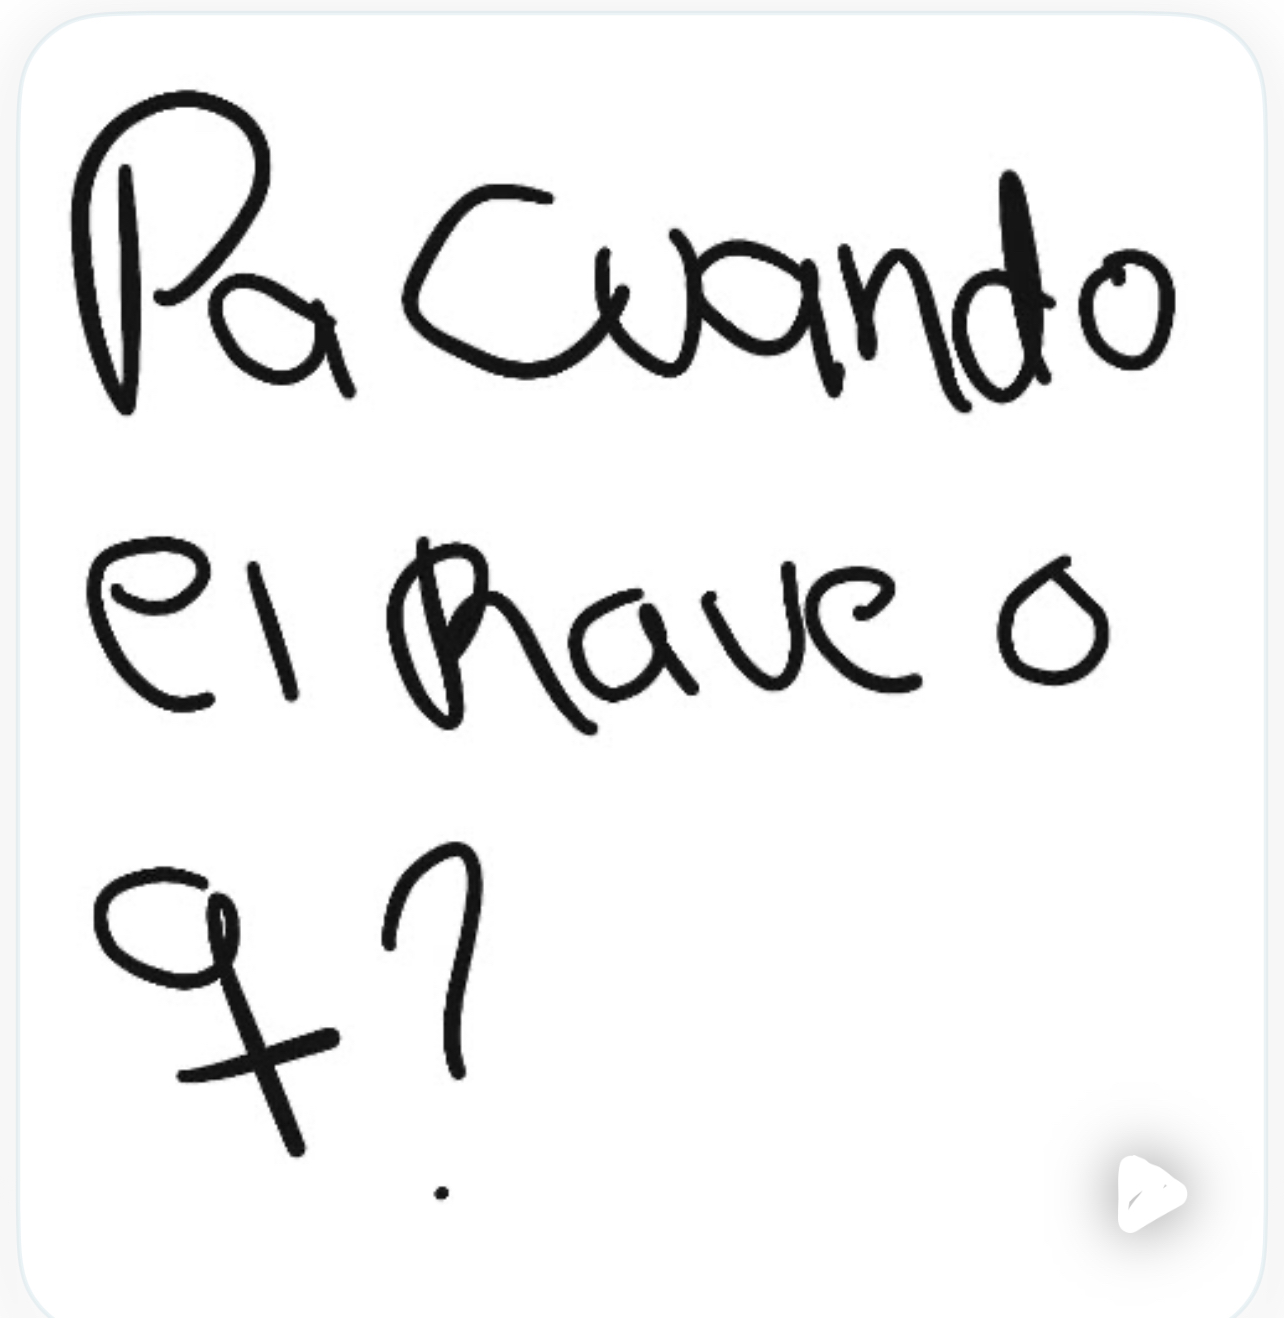 Pa Cuando
el Rave o
q?